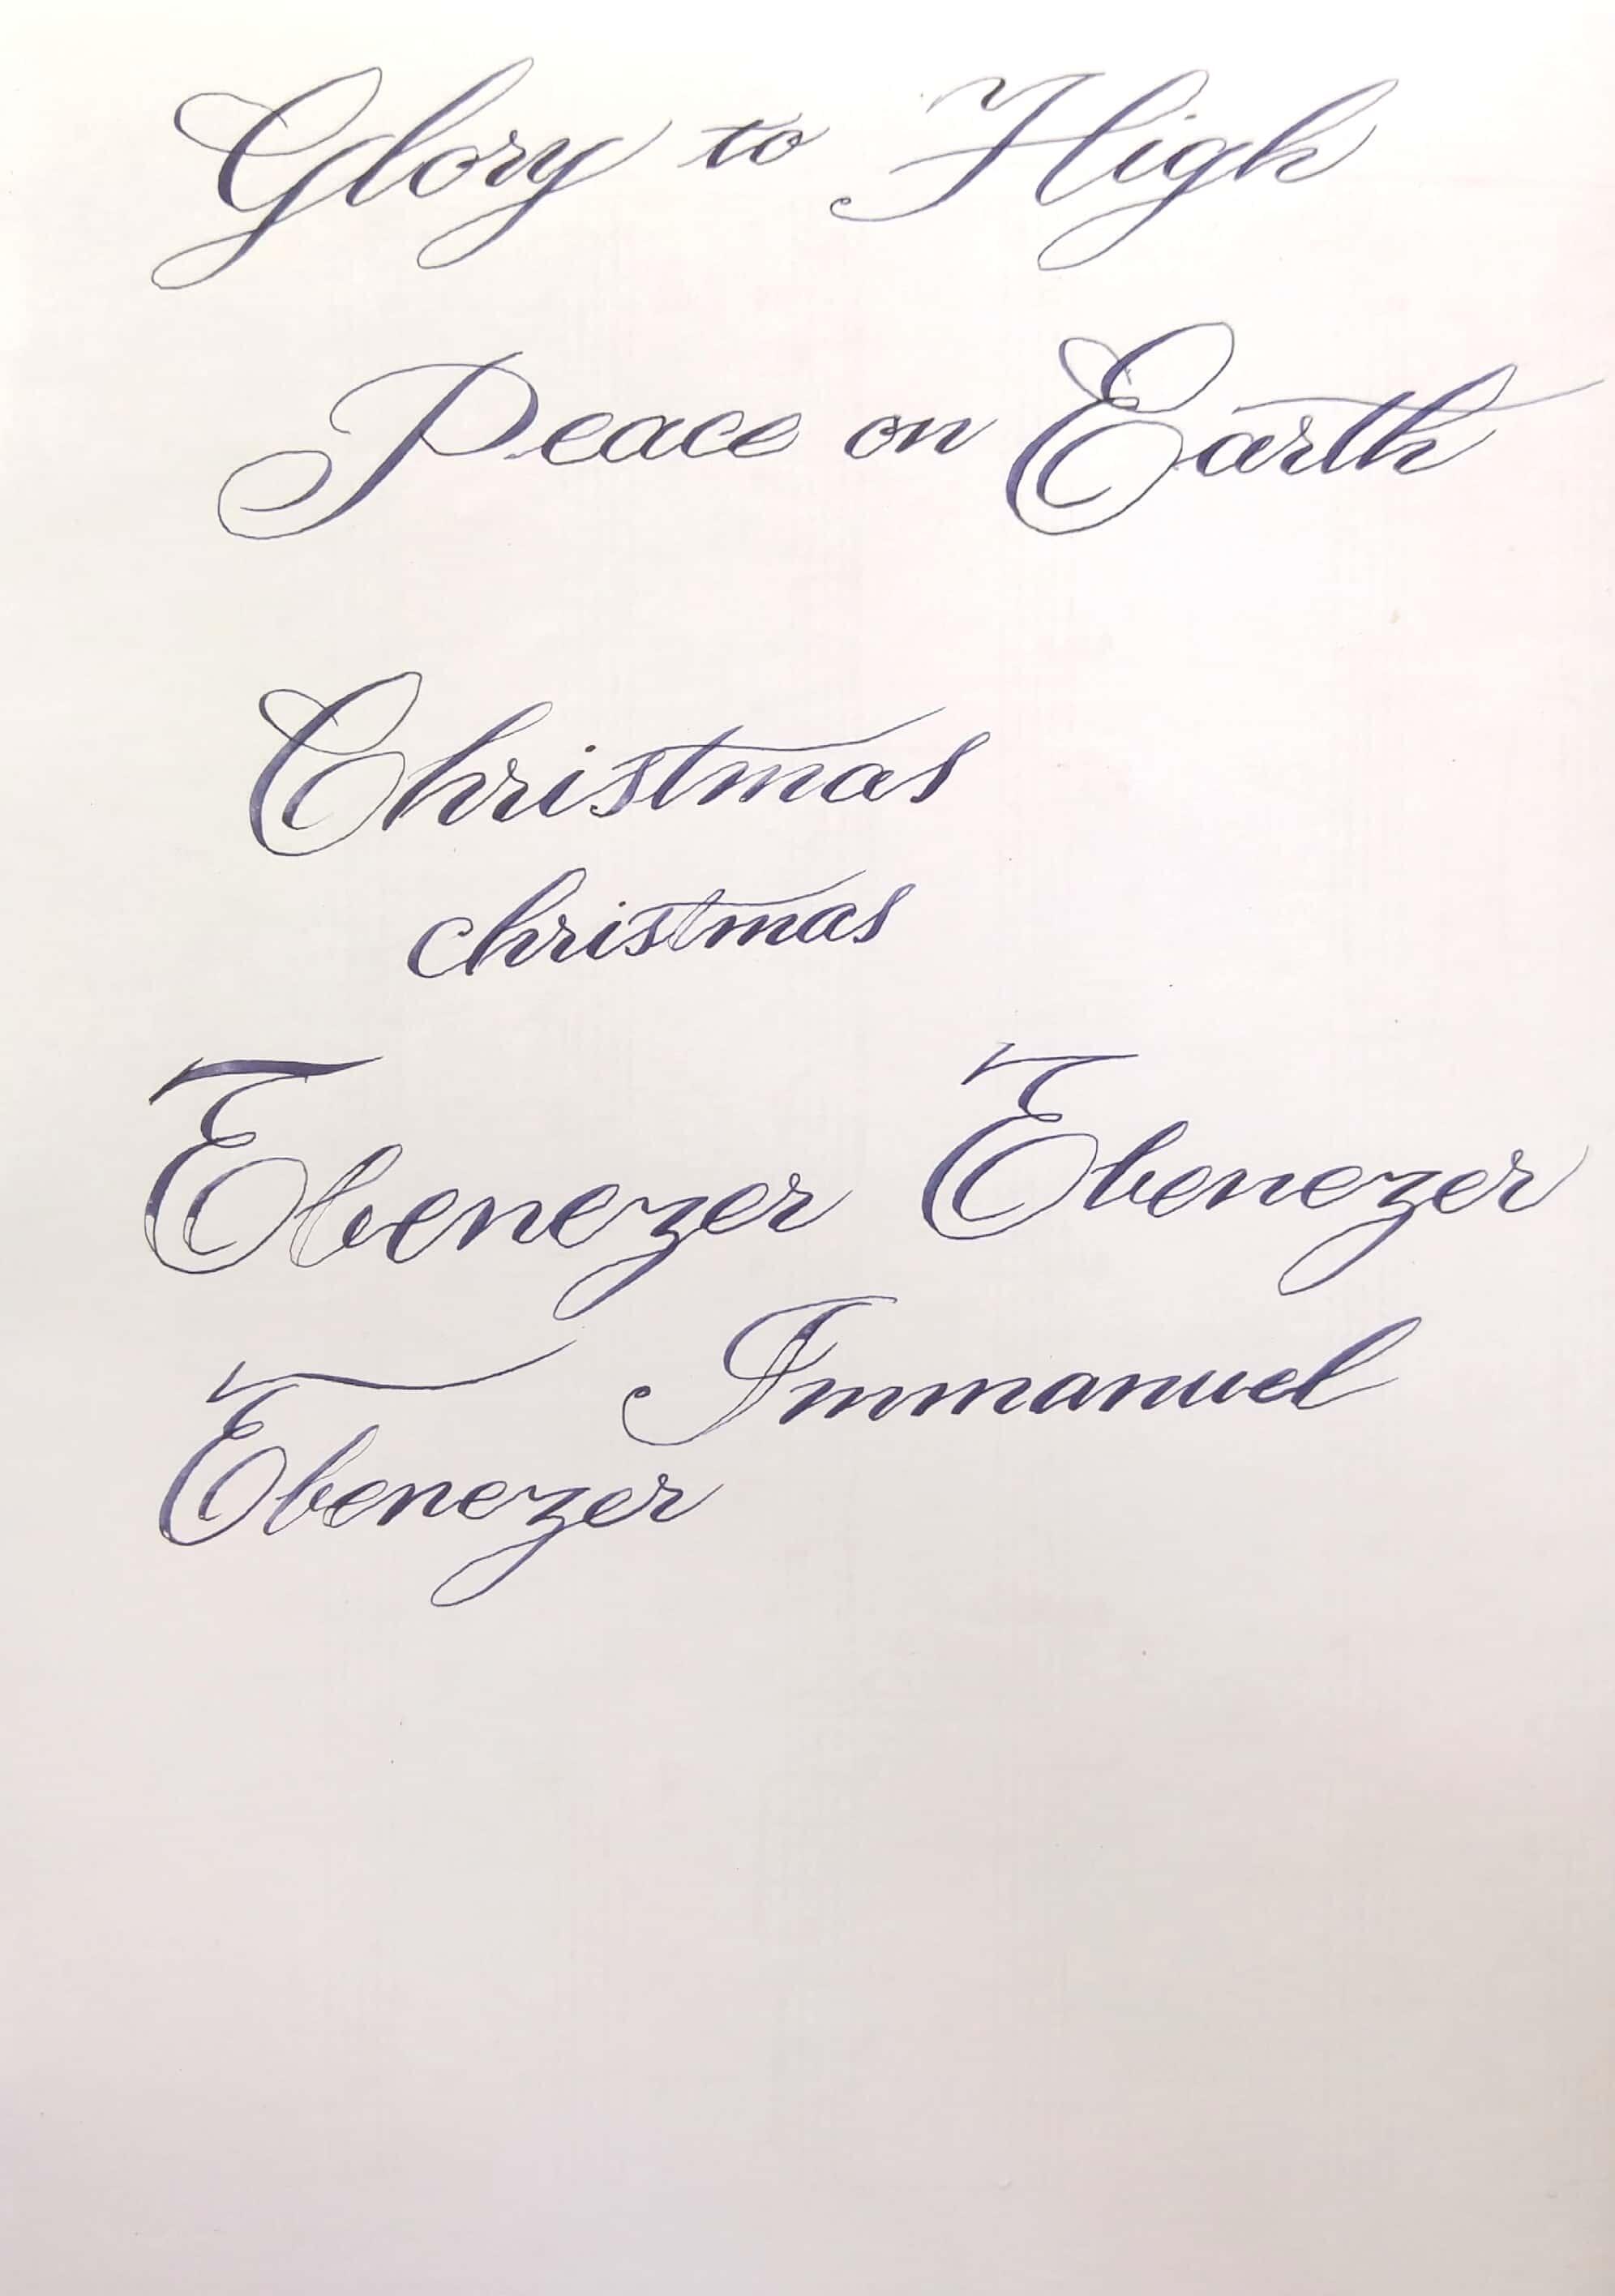 Glory to High
Peace on Earth
Christmas
christmas
Ebenezer Ebenezer
Immanuel
Ebenezer